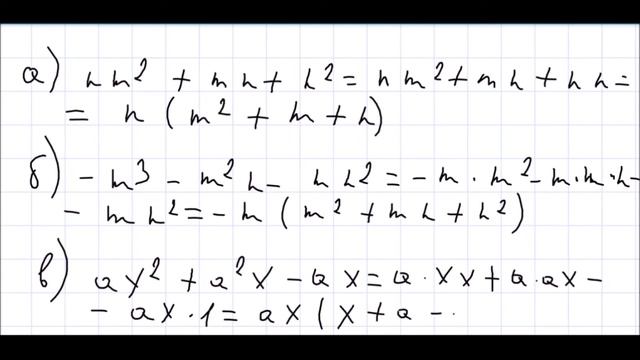 а) nm² + mn + n² = nm² + mn + nn =
= n (m² + m + n)
б) - m³ - m²n - mn² = -m · m² - m·m·n -
- mn² = -m (m² + mn + n²)
в) ax² + a²x - ax = a·xx + a·ax -
- ax·1 = ax (x + a -